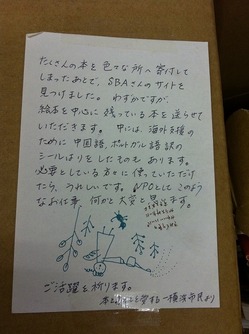 たくさんの本を色々な所へ寄付して
しまったあとで、SBAさんのサイトを
見つけました。わずかですが、
絵本を中心に残っている本を送らせて
いただきます。中には、海外支援の
ために中国語、ポルトガル語訳の
シールはりをしたものもあります。
必要としている方々に使っていただけ
たら、うれしいです。NPOとしてこのよう
なお仕事、何かと大変と思います。
ご活躍を祈ります。
を愛する一横浜市民より